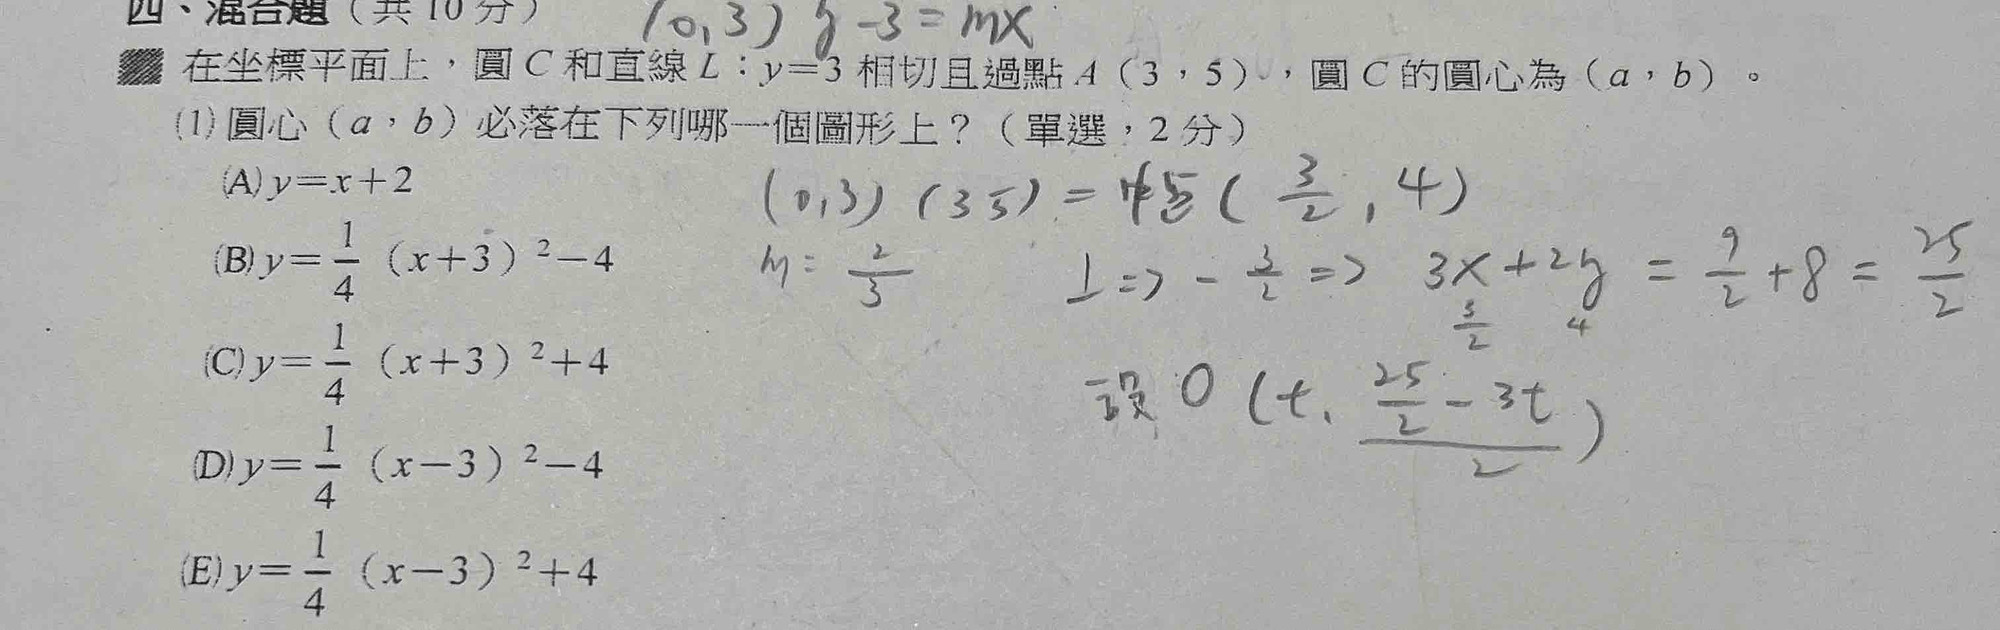 四、混合題（共 10 分）
(0,3) y-3=mx
在坐標平面上，圓 C 和直線 L：y=3 相切且過點 A（3，5），圓 C 的圓心為（a，b）。
(1) 圓心（a，b）必落在下列哪一個圖形上？（單選，2 分）
(A) y=x+2
(0,3) (3 5) = 中點 ( 3/2 , 4)
(B) y=1/4（x+3）²-4
m= 2/3 ⊥=> - 3/2 => 3x+2y = 9/2 +8 = 25/2
3/2 4
(C) y=1/4（x+3）²+4
設 O (t, (25/2 - 3t)/2)
(D) y=1/4（x-3）²-4
(E) y=1/4（x-3）²+4